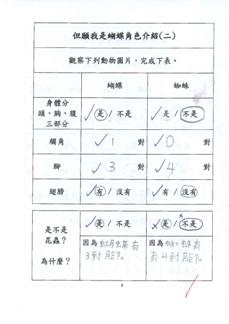 但願我是蝴蝶角色介紹(二)
觀察下列動物圖片，完成下表。
蝴蝶 蜘蛛
身體分頭、胸、腹三部分 是 / 不是 是 / 不是
觸角 1 對 0 對
腳 3 對 4 對
翅膀 有 / 沒有 有 / 沒有
是不是昆蟲？ 是 / 不是 是 / 不是
為什麼？ 因為 有3對腳。 因為 有4對腳。